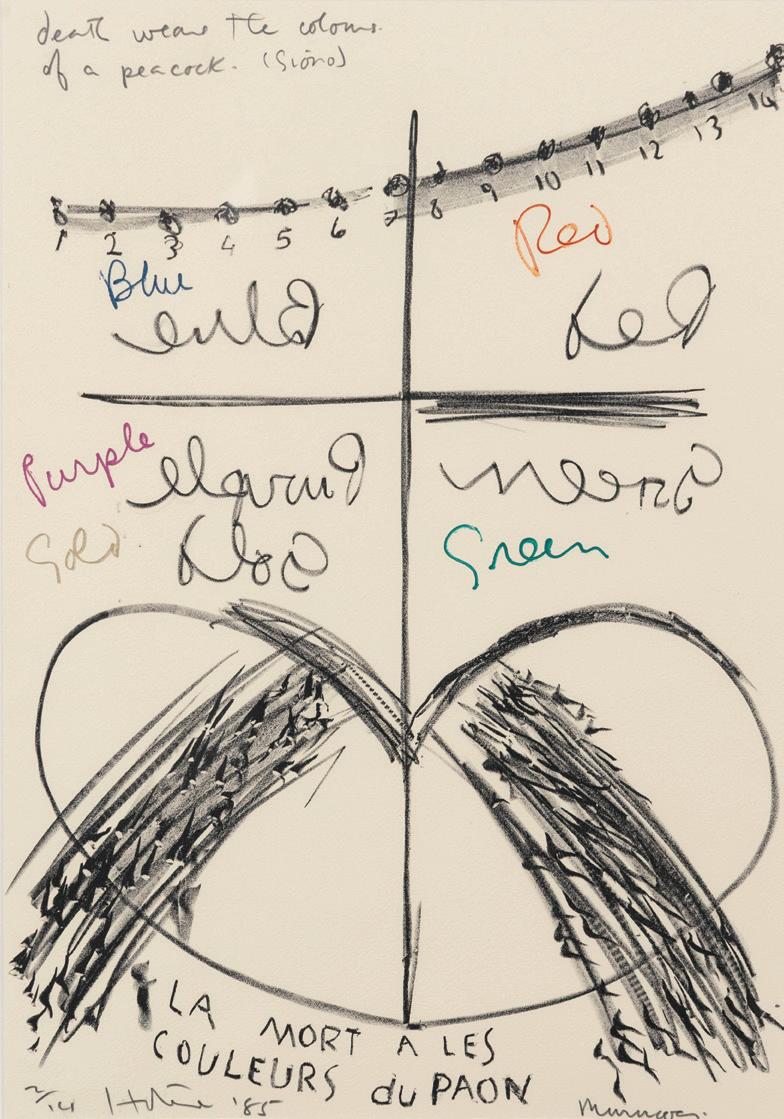 death wears the colours
of a peacock. (Giono)
1 2 3 4 5 6 7 8 9 10 11 12 13 14
Red
Blue
Blue
Red
Purple
Purple
Green
Gold
Gold
Green
LA MORT A LES
COULEURS du PAON
2/14 '85